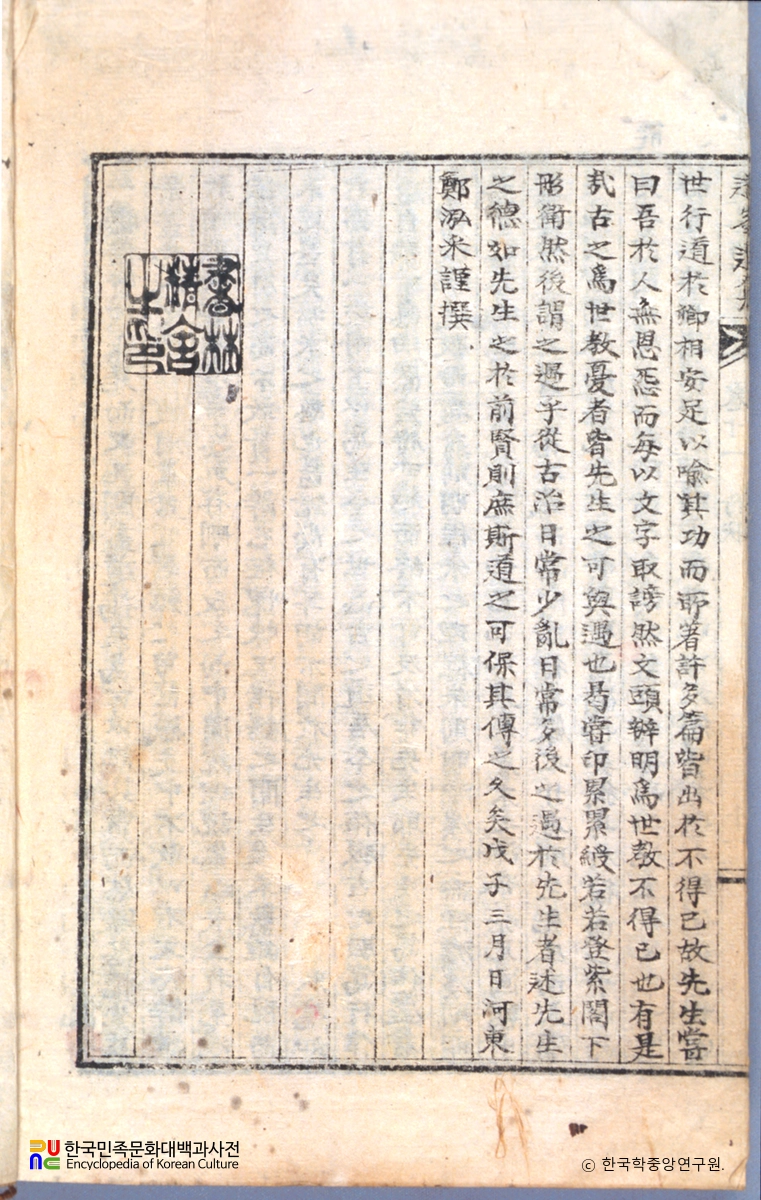 世行道於卿相安足以喩其功而所著許多篇皆出於不得已故先生嘗
曰吾於人無恩怨而每以文字取謗然文頭辨明爲世敎不得已也有是
哉古之爲世敎憂者皆先生之可與遇也曷嘗印累累綬若若登紫閣下
彤衛然後謂之遇乎從古治日常少亂日常多後之遇於先生者述先生
之德如先生之於前賢則庶斯道之可保其傳之久矣戊子三月日河東
鄭泓采謹撰
書林
精舍
之印
한국민족문화대백과사전
Encyclopedia of Korean Culture
ⓒ 한국학중앙연구원.